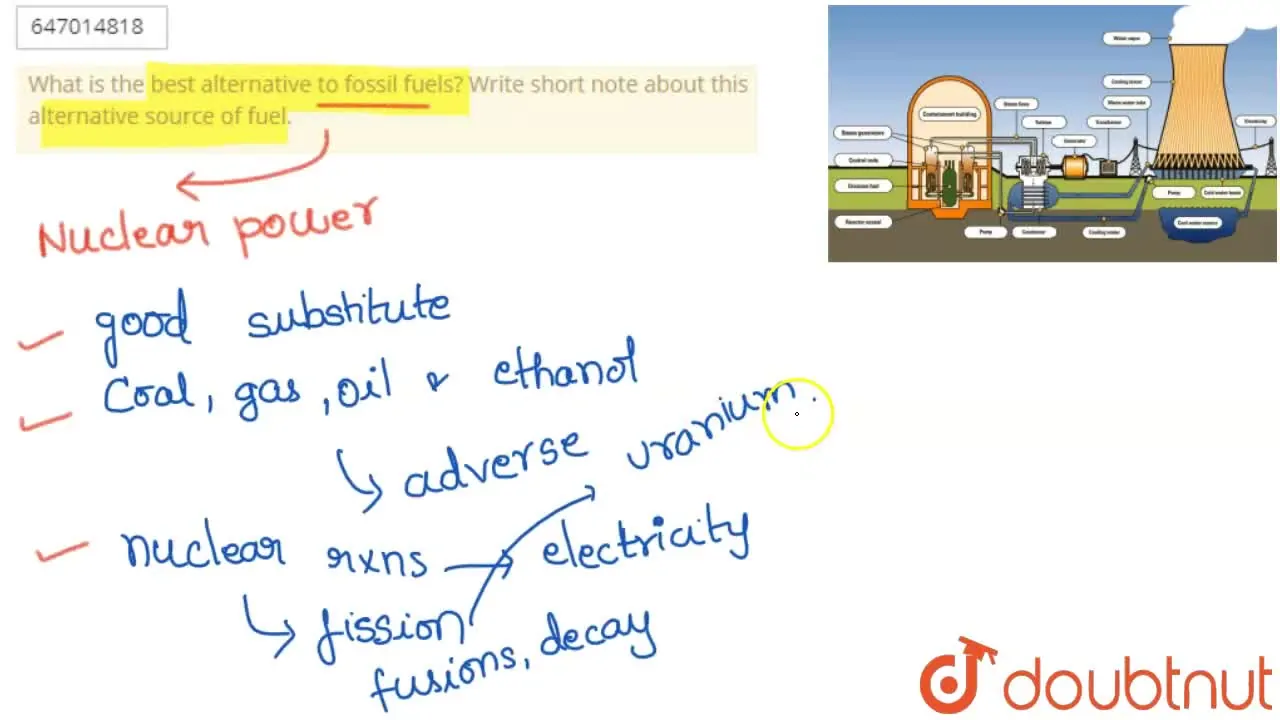 647014818
What is the best alternative to fossil fuels? Write short note about this
alternative source of fuel.
Nuclear power
good substitute
Coal, gas, oil & ethanol
adverse
uranium.
nuclear rxns
electricity
fission
fusions, decay
Water vapor
Cooling tower
Warm water inlet
Containment building
Steam lines
Turbine
Transformer
Electricity
Steam generators
Generator
Control rods
Uranium fuel
Pump
Cold water basin
Reactor vessel
Pump
Condenser
Cooling water
Cool water source
doubtnut